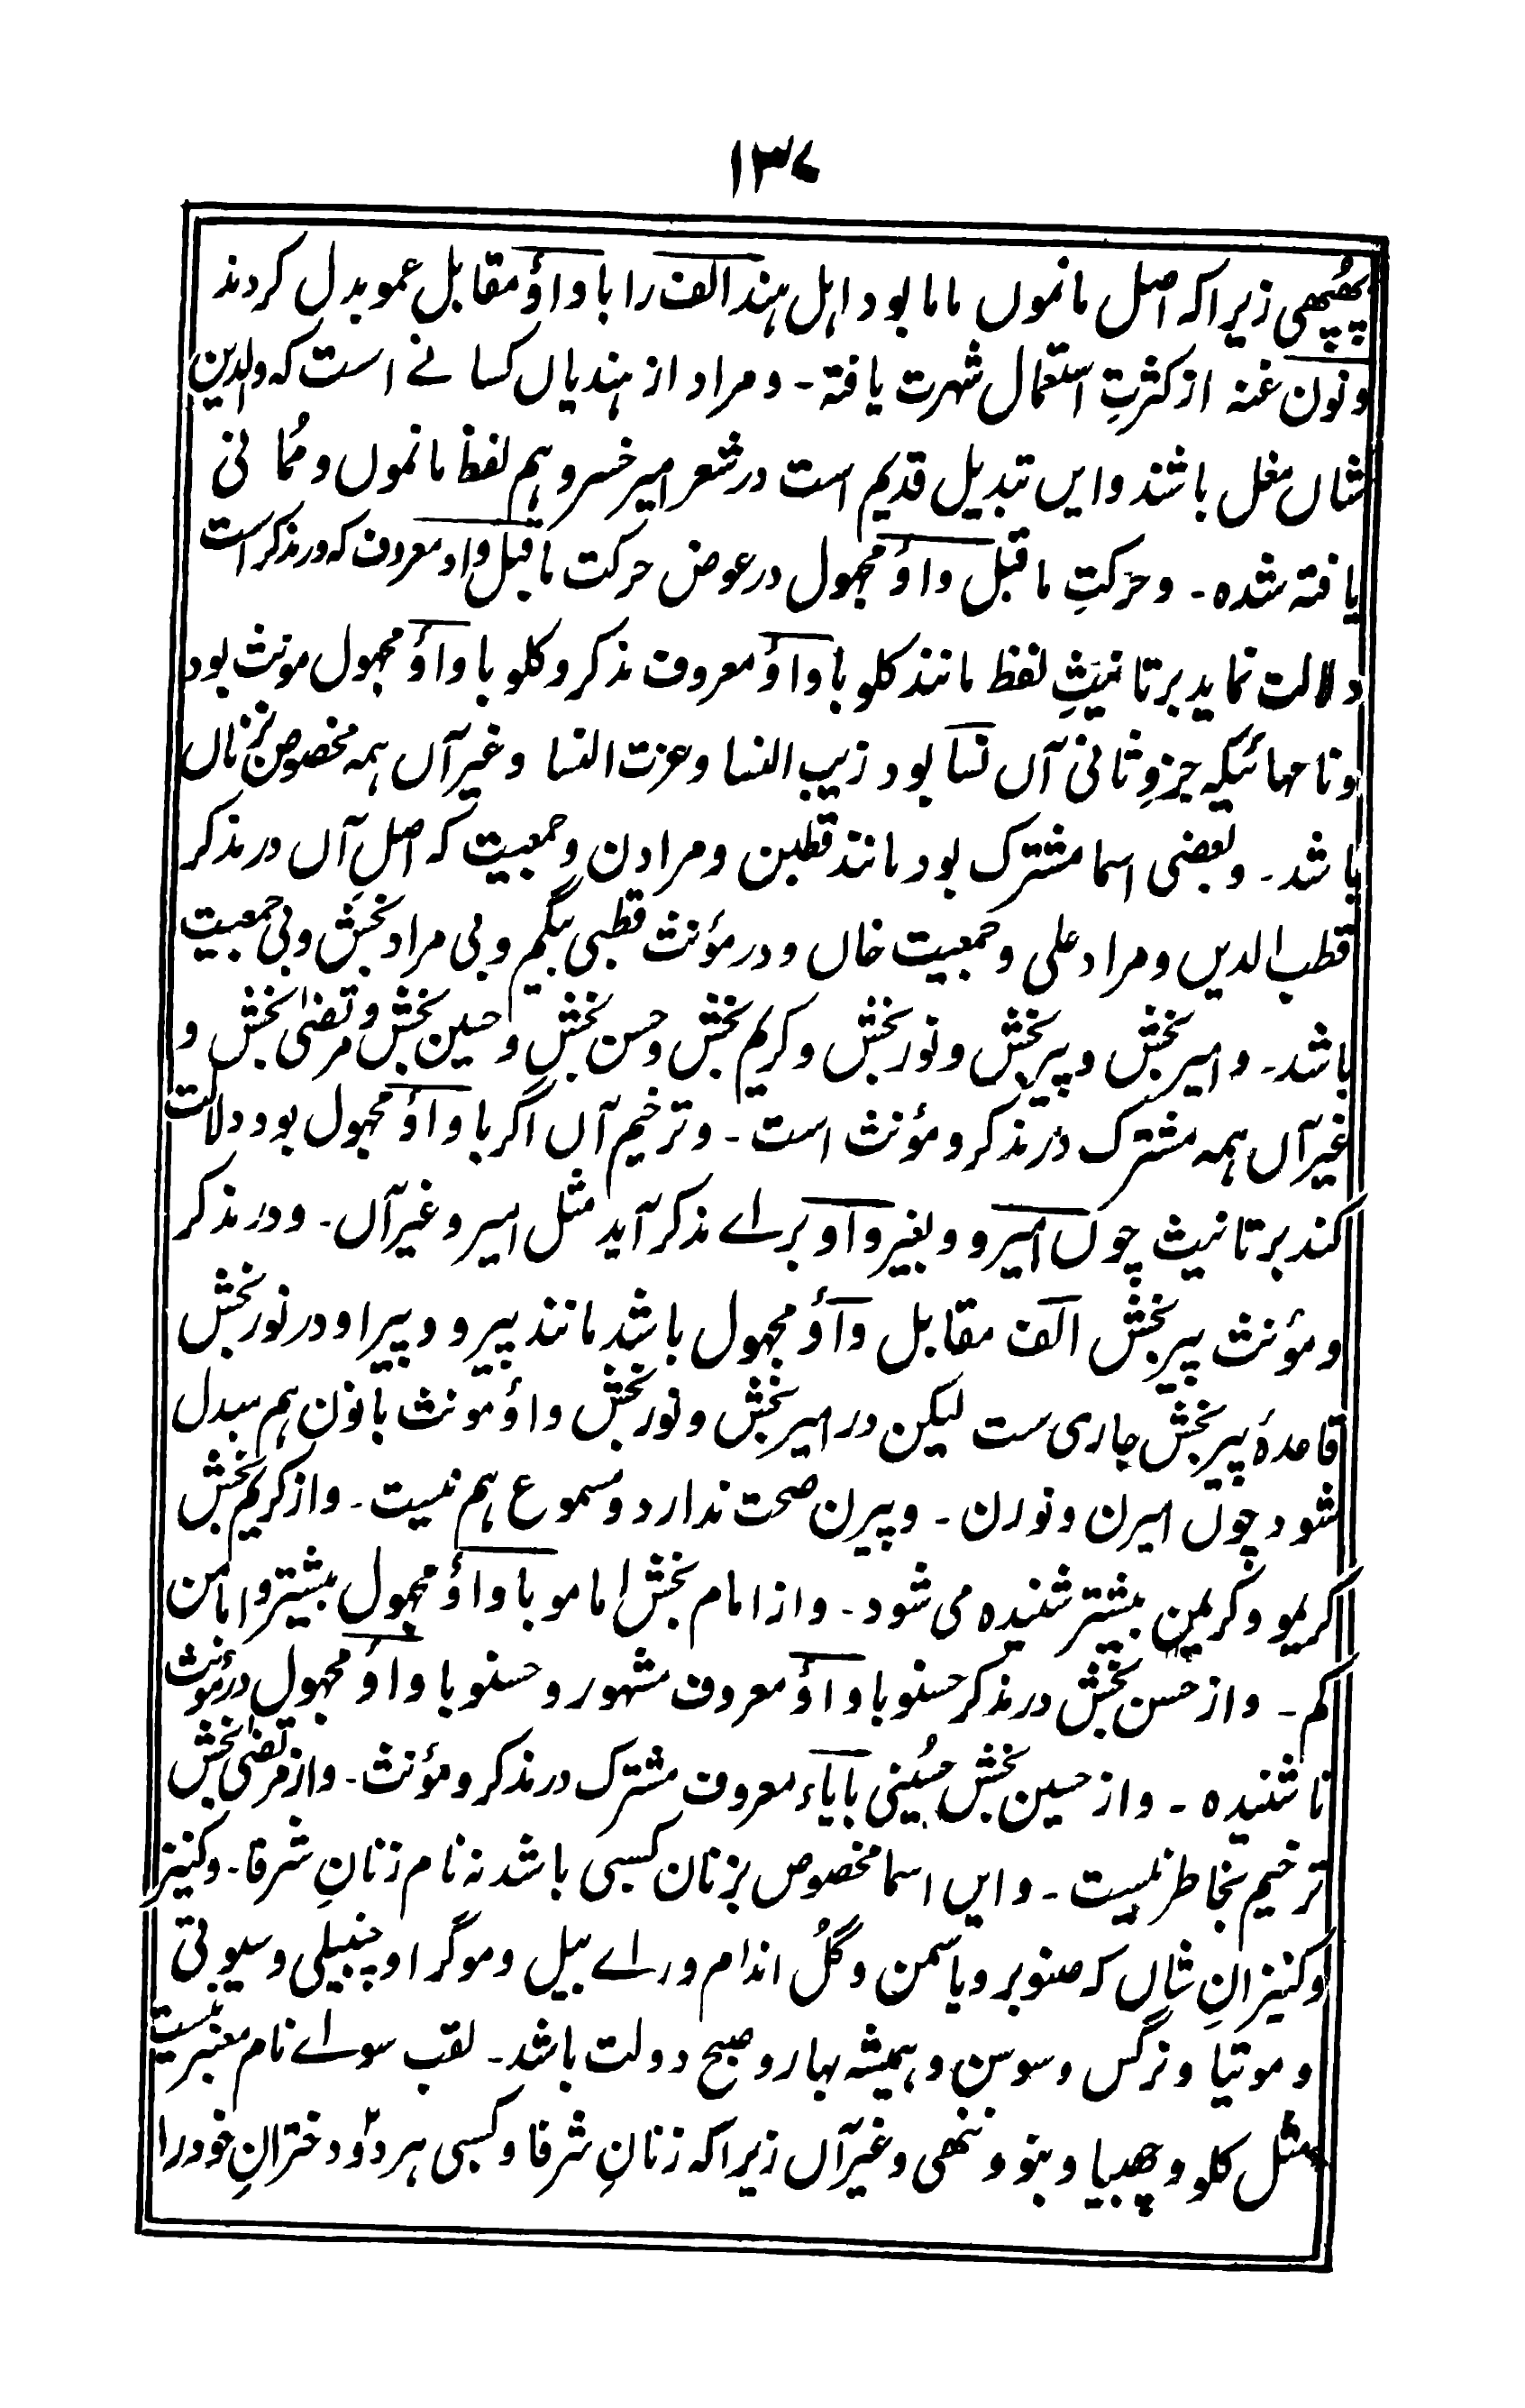 ۱۳۷
پھُپھی زیراکہ اصل مانموں ماما بود اہل ہند الف را با واؤ مقابل عمو بدل کردند
و نون غنہ از کثرتِ استعمال شہرت یافتہ۔ و مراد از ہندیاں کسانے است کہ والدین
شاں مغل باشند و ایں تبدیل قدیم است در شعر امیر خسرو ہم لفظ مانموں و مُمانی
یافتہ شدہ۔ و حرکتِ ماقبل واؤ مجہول در عوض حرکت ماقبل واو معروف کہ در مذکر است
دلالت نماید بر تانیثِ لفظ مانند کلو با واؤ معروف مذکر و کلو با واؤ مجہول مونث بود
و نامہائیکہ جزوِ ثانی آں نسا بود زیب النسا و عزت النسا و غیر آں ہمہ مخصوص بزناں
باشد۔ و بعضی اسما مشترک بود مانند قطبن و مرادن و جمعیت کہ اصلِ آں در مذکر
قطب الدیں و مراد علی و جمعیت خاں و در مؤنث قطبی بیگم و بی مراد بخش و بی جمعیت
باشد۔ و امیر بخش و پیر بخش و نور بخش و کریم بخش و حسن بخش و حسین بخش و مرتضیٰ بخش و
غیر آں ہمہ مشترک در مذکر و مؤنث است۔ و ترخیم آں اگر با واؤ مجہول بود دلالت
کند بر تانیث چوں امیرو و بغیر واو براے مذکر آید مثل امیر و غیر آں۔ و در مذکر
و مؤنث پیر بخش الف مقابل واؤ مجہول باشد مانند پیرو و پیرا و در نور بخش
قاعدۂ پیر بخش جاری ست لیکن در امیر بخش و نور بخش واؤ مونث با نون ہم مبدل
شود چوں امیرن و نورن۔ و پیرن صحت ندارد و مسموع ہم نیست۔ و از کریم بخش
کریمو و کریمن بیشتر شنیدہ می شود۔ و از امام بخش امامو با واؤ مجہول بیشتر و امامن
کم۔ و از حسن بخش در مذکر حسنو با واؤ معروف مشہور و حسنو با واؤ مجہول در مؤنث
ناشنیدہ۔ و از حسین بخش حُسینی با یاء معروف مشترک در مذکر و مؤنث۔ و از مرتضیٰ بخش
ترخیم بخاطر نیست۔ و ایں اسما مخصوص بزنان کسبی باشد نہ نام زنانِ شرفا۔ و کنیز
و کنیزانِ شاں کہ صنوبر و یاسمن و گُل اندام و راے بیل و موگرا و چنبیلی و سیوتی
و موتیا و نرگس و سوسن و ہمیشہ بہار و صبح دولت باشد۔ لقب سواے نام معتبر نیست
مثل کلو و چھبیا و بنو و ننھی و غیر آں زیراکہ زنانِ شرفا و کسبی ہر دو دخترانِ خود را